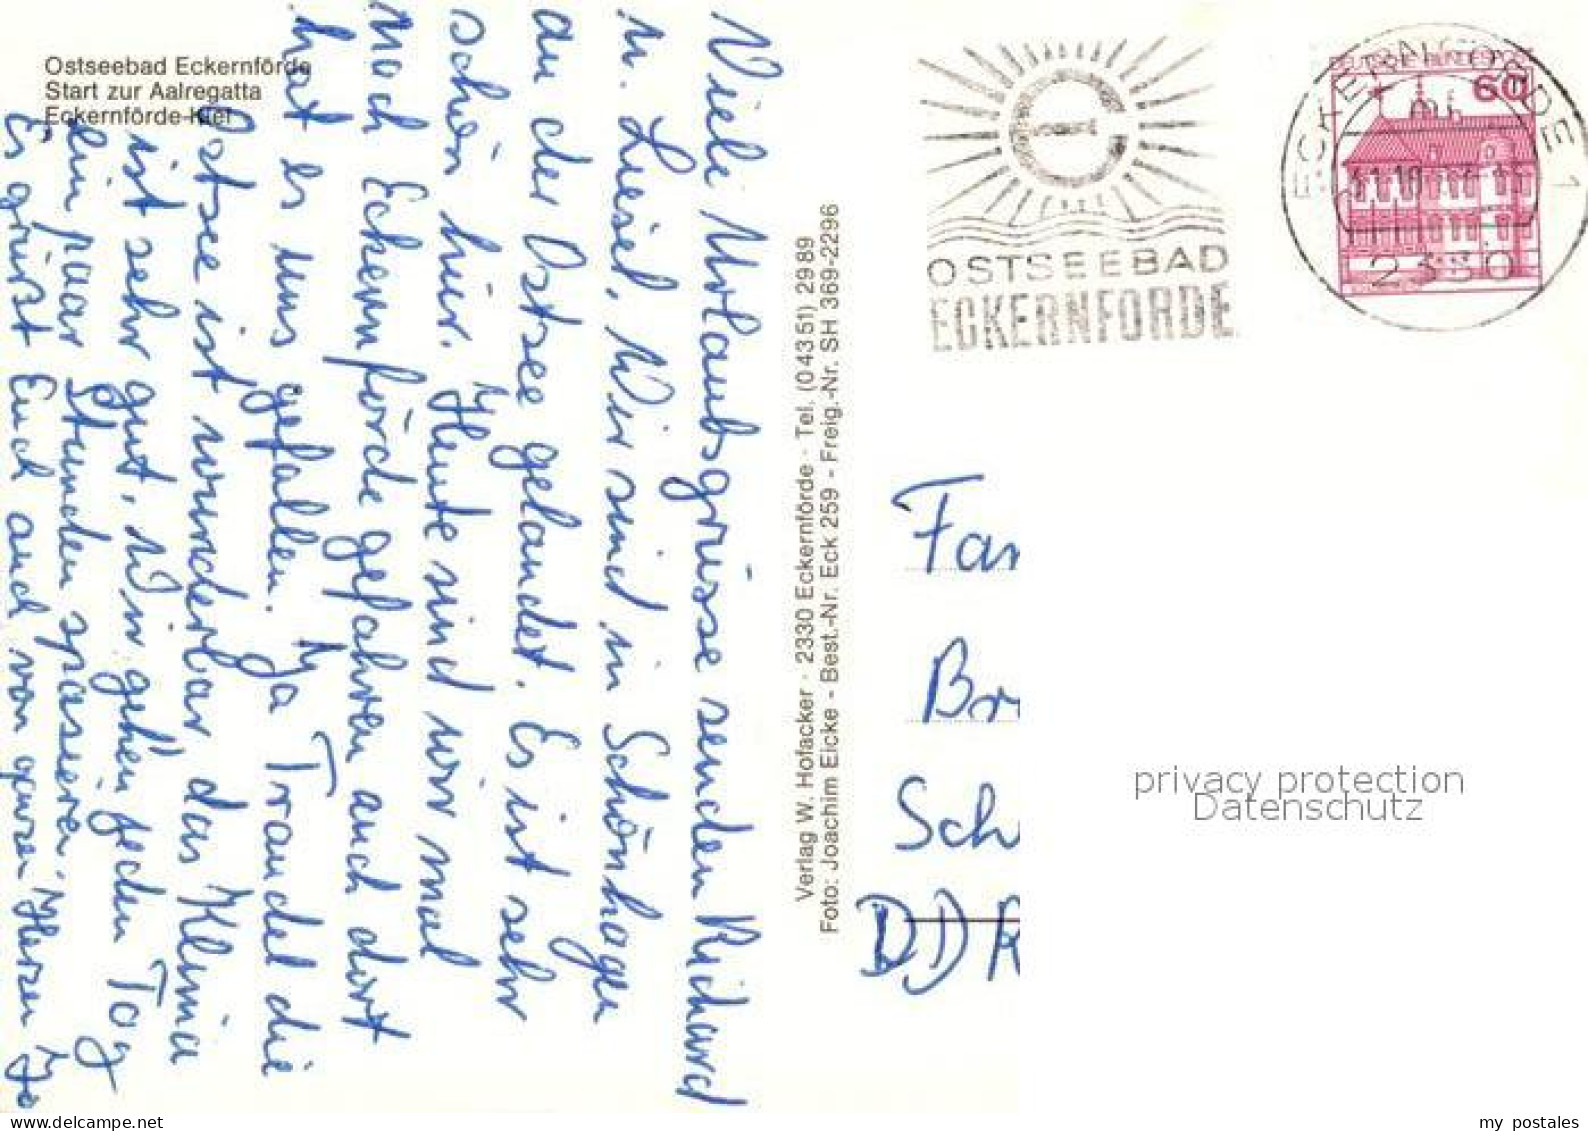 Ostseebad Eckernförde
Start zur Aalregatta
Eckernförde-Kiel
Viele Urlaubsgrüsse senden Richard
u. Liesel. Wir sind in Schönhagen
an der Ostsee gelandet. Es ist sehr
schön hier. Heute sind wir mal
nach Eckernförde gefahren auch dort
hat es uns gefallen. Ja Traudel die
Ostsee ist wunderbar, das Klima
ist sehr gut, wir gehen jeden Tag
ein paar Stunden spazieren.
Es grüßt Euch auch von ganzen Herzen
Verlag W. Hofacker · 2330 Eckernförde · Tel. (0 43 51) 29 89
Foto: Joachim Eicke - Best.-Nr. Eck 259 - Freig.-Nr. SH 369-2296
OSTSEEBAD
ECKERNFÖRDE
DEUTSCHE BUNDESPOST
60
ECKERNFÖRDE 1
2330
Fam
Br
Sch
DDR
privacy protection
Datenschutz
www.delcampe.net
my_postales